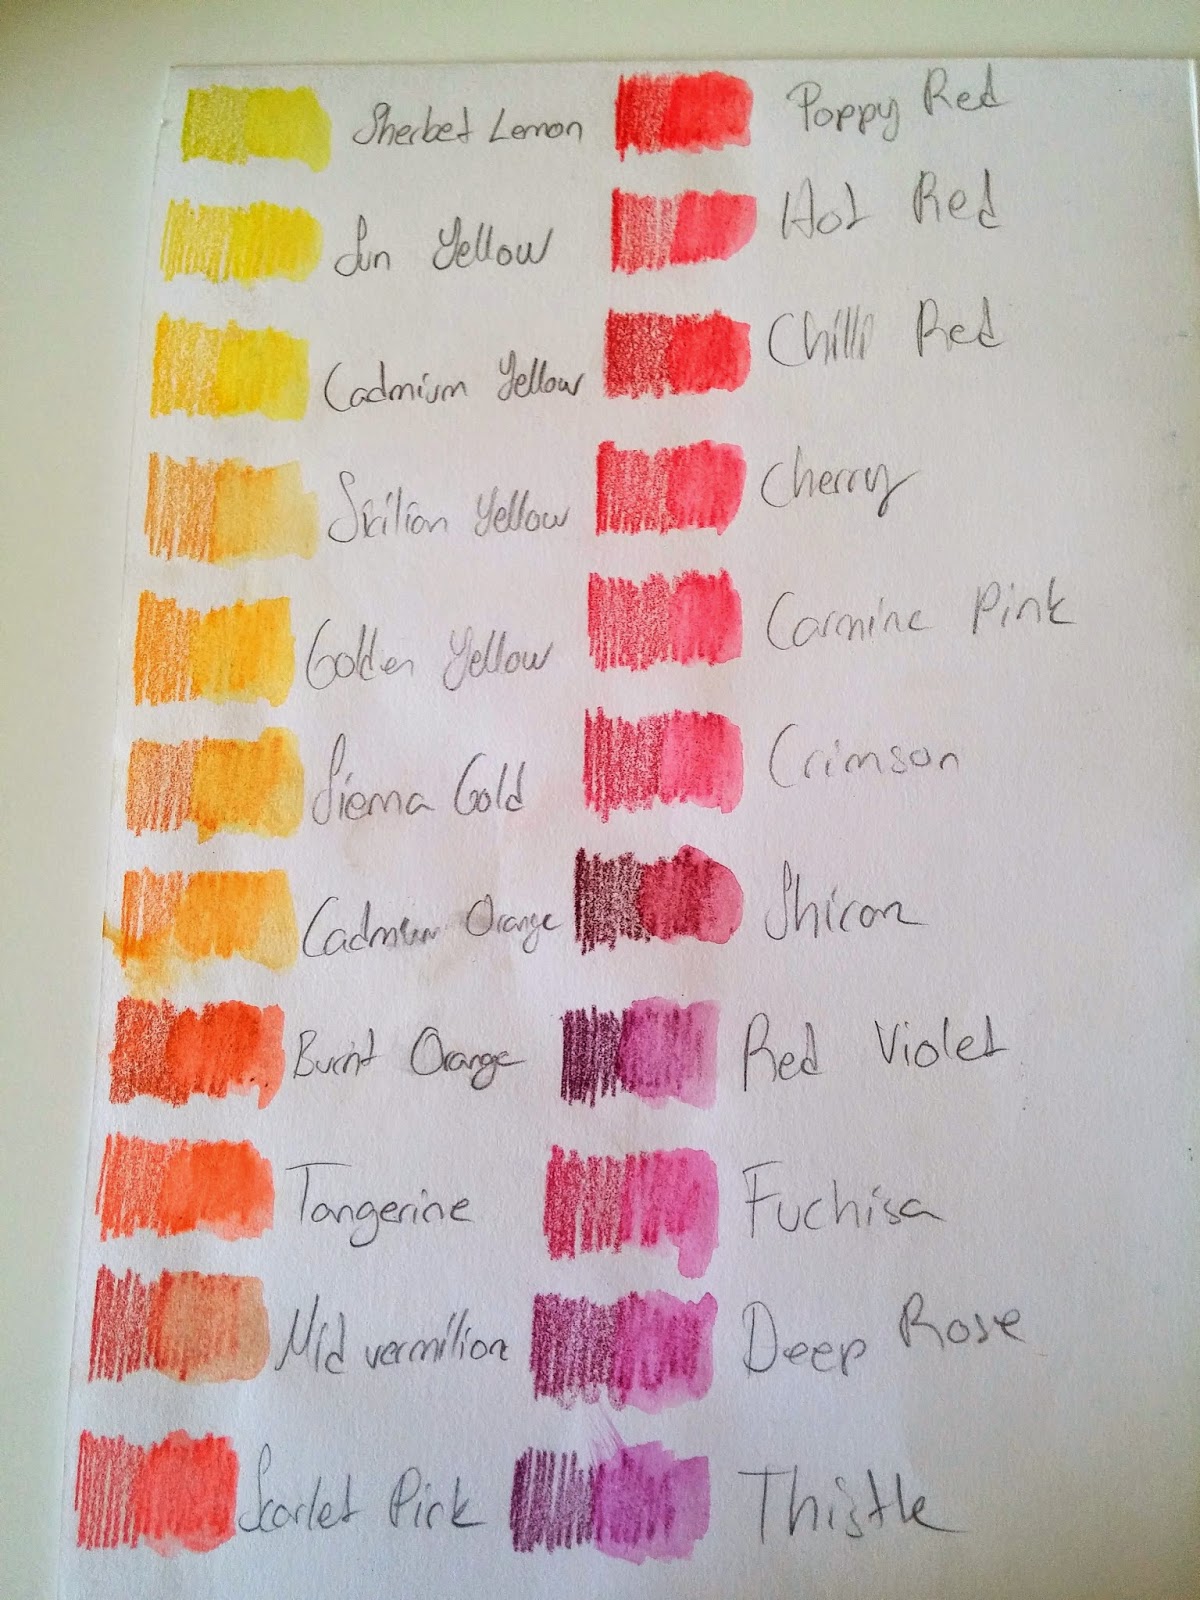 Sherbet Lemon
Sun Yellow
Cadmium Yellow
Sicilian Yellow
Golden Yellow
Sienna Gold
Cadmium Orange
Burnt Orange
Tangerine
Mid vermilion
Scarlet Pink
Poppy Red
Hot Red
Chilli Red
Cherry
Carmine Pink
Crimson
Shiraz
Red Violet
Fuchisa
Deep Rose
Thistle